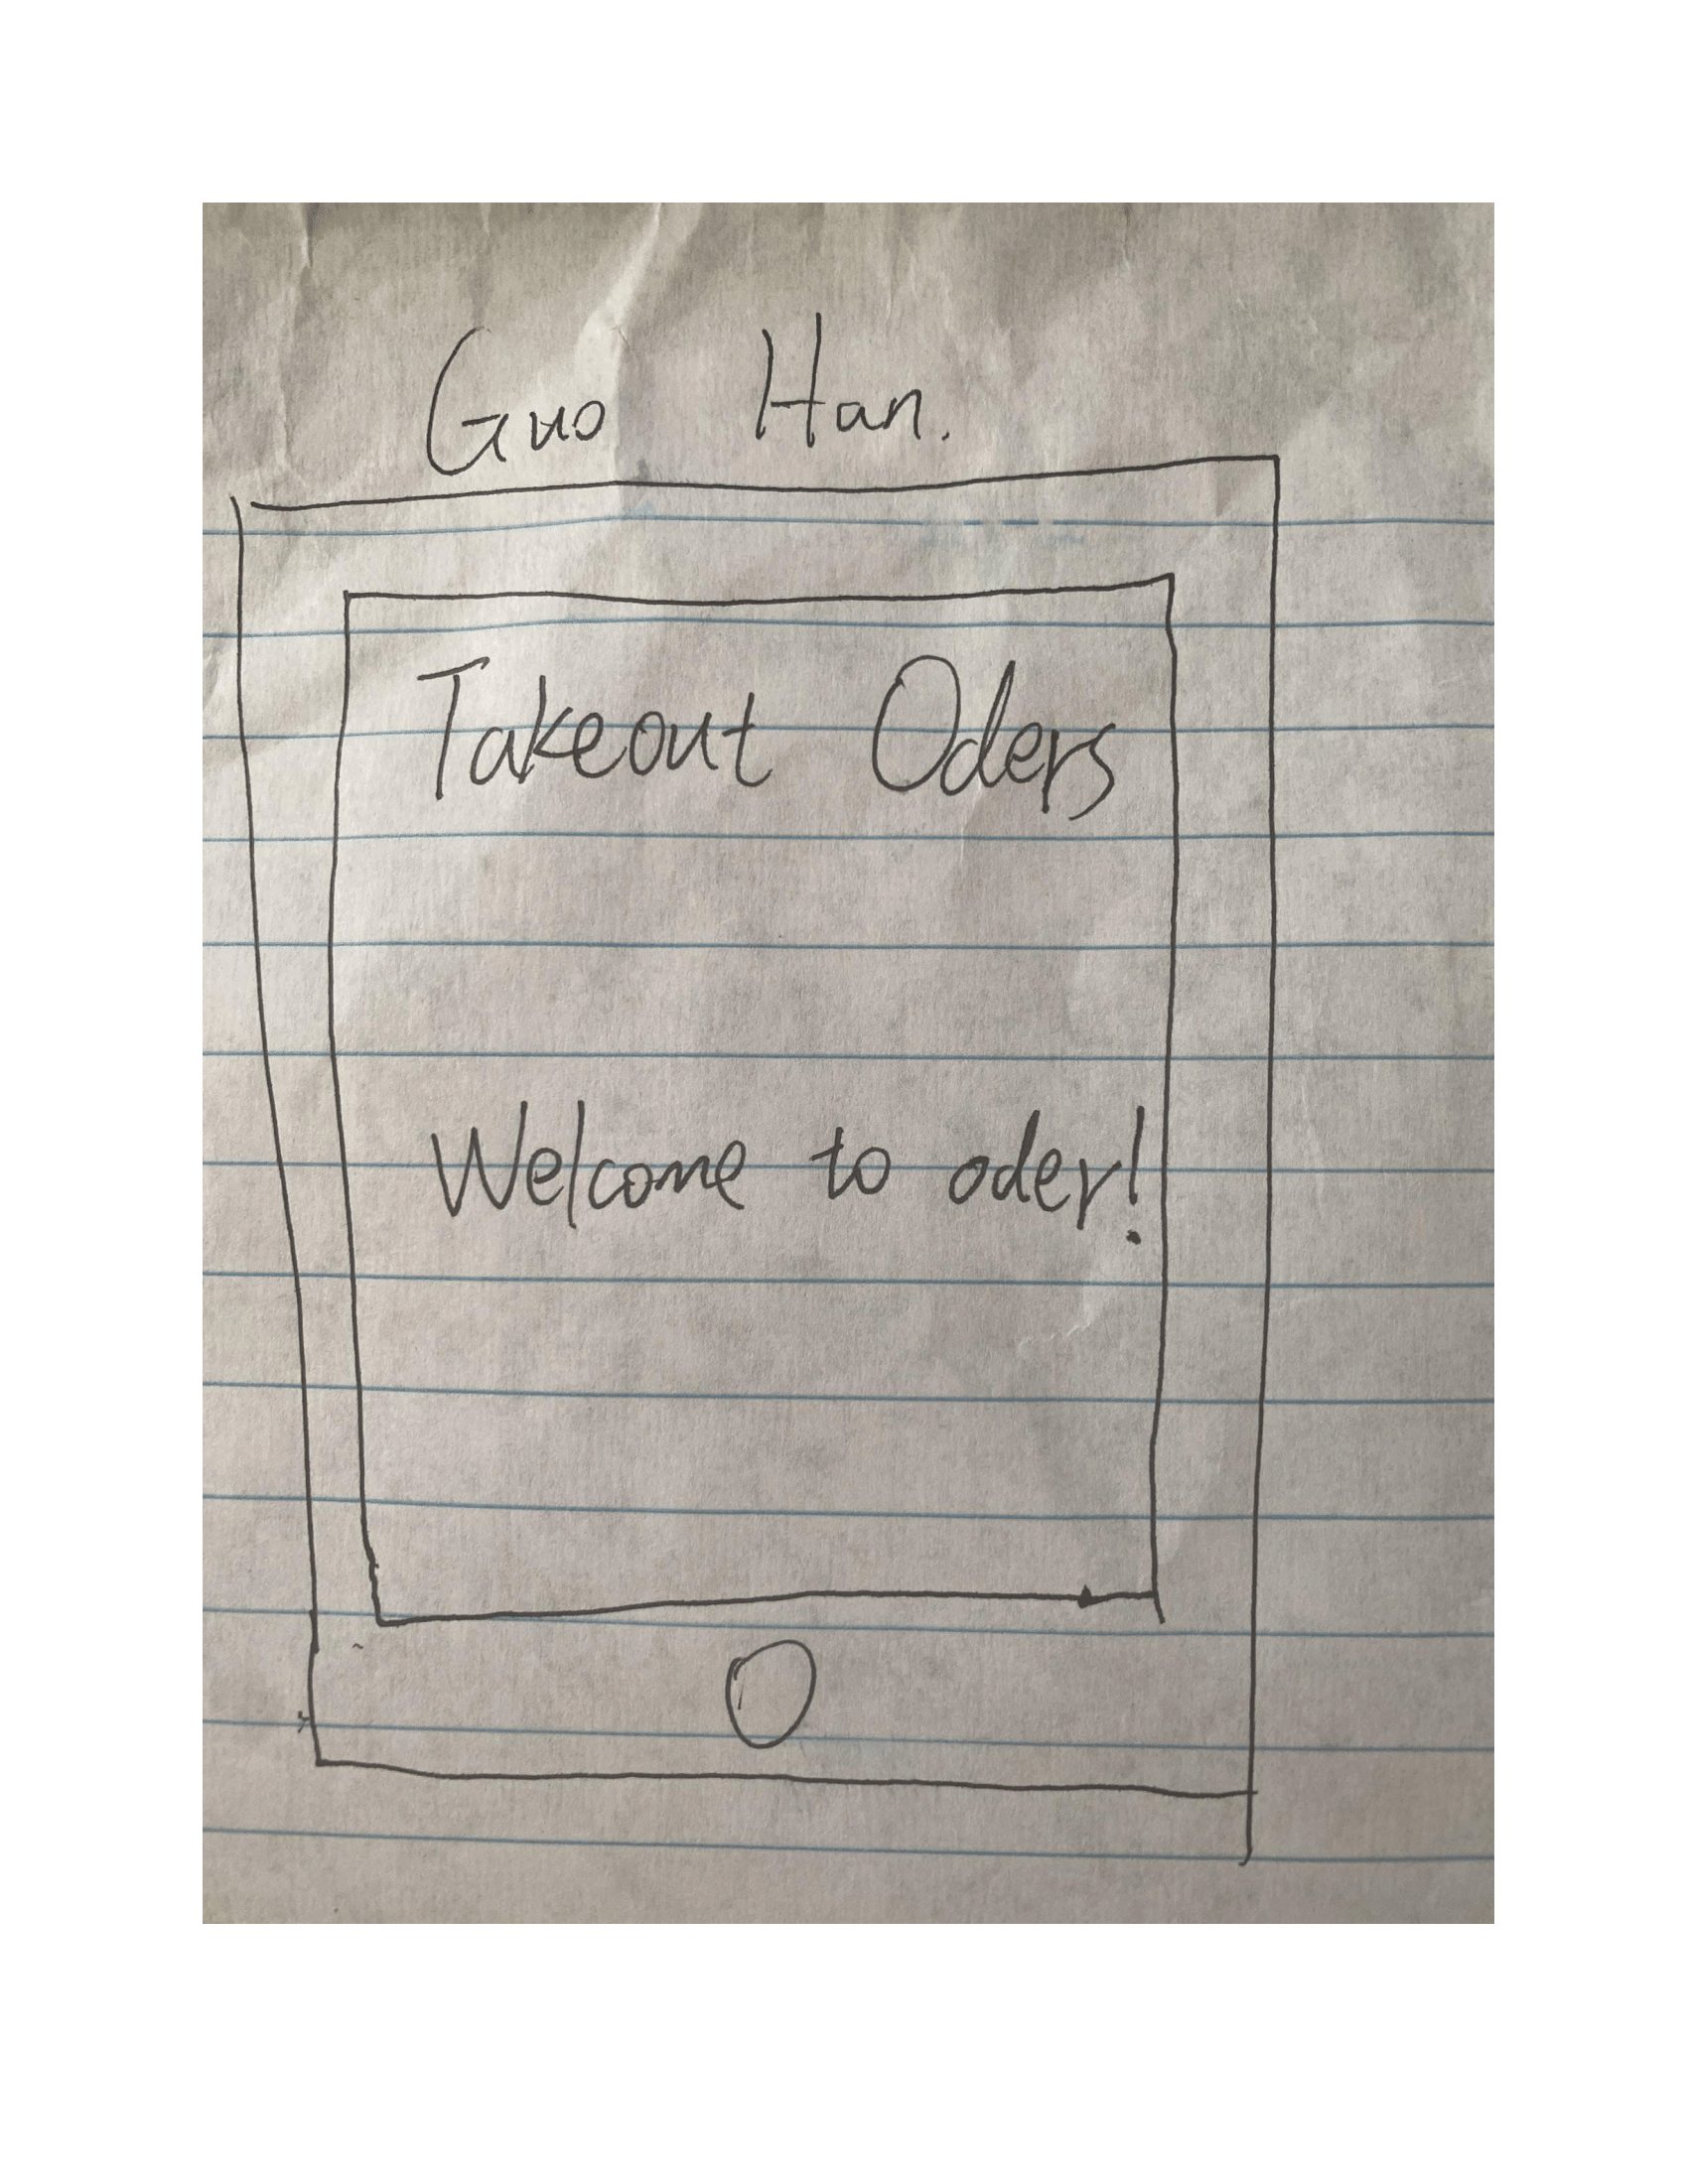 Guo Han.
Takeout Oders
Welcome to oder!